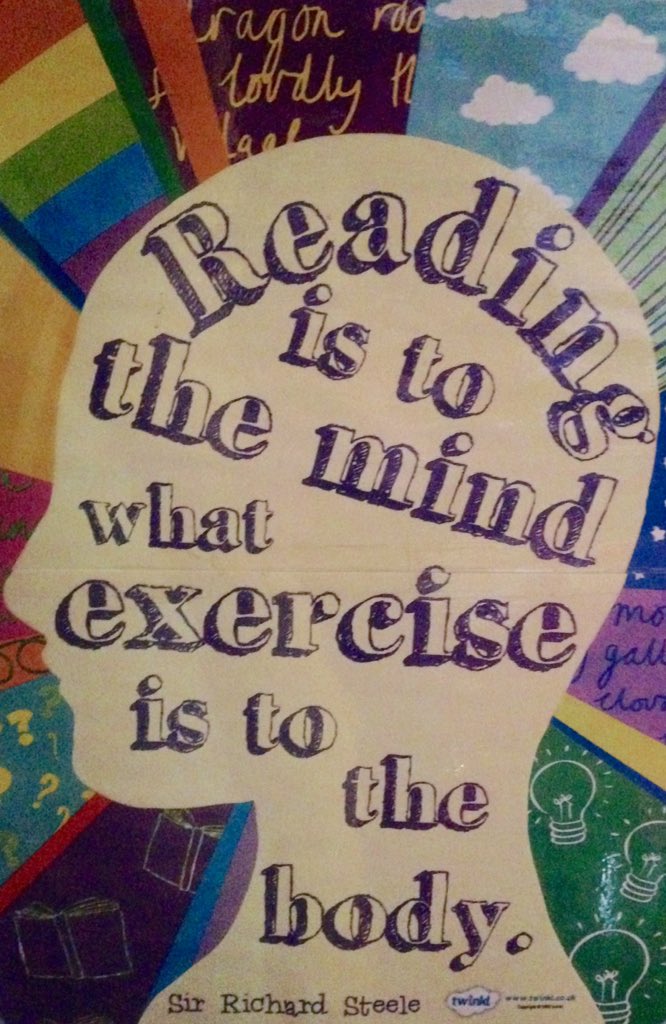 ragon roo
loudly th
Reading
is to
the mind
what
exercise
is to
the
body.
mo
gall
Sir Richard Steele
twinkl www.twinkl.co.uk